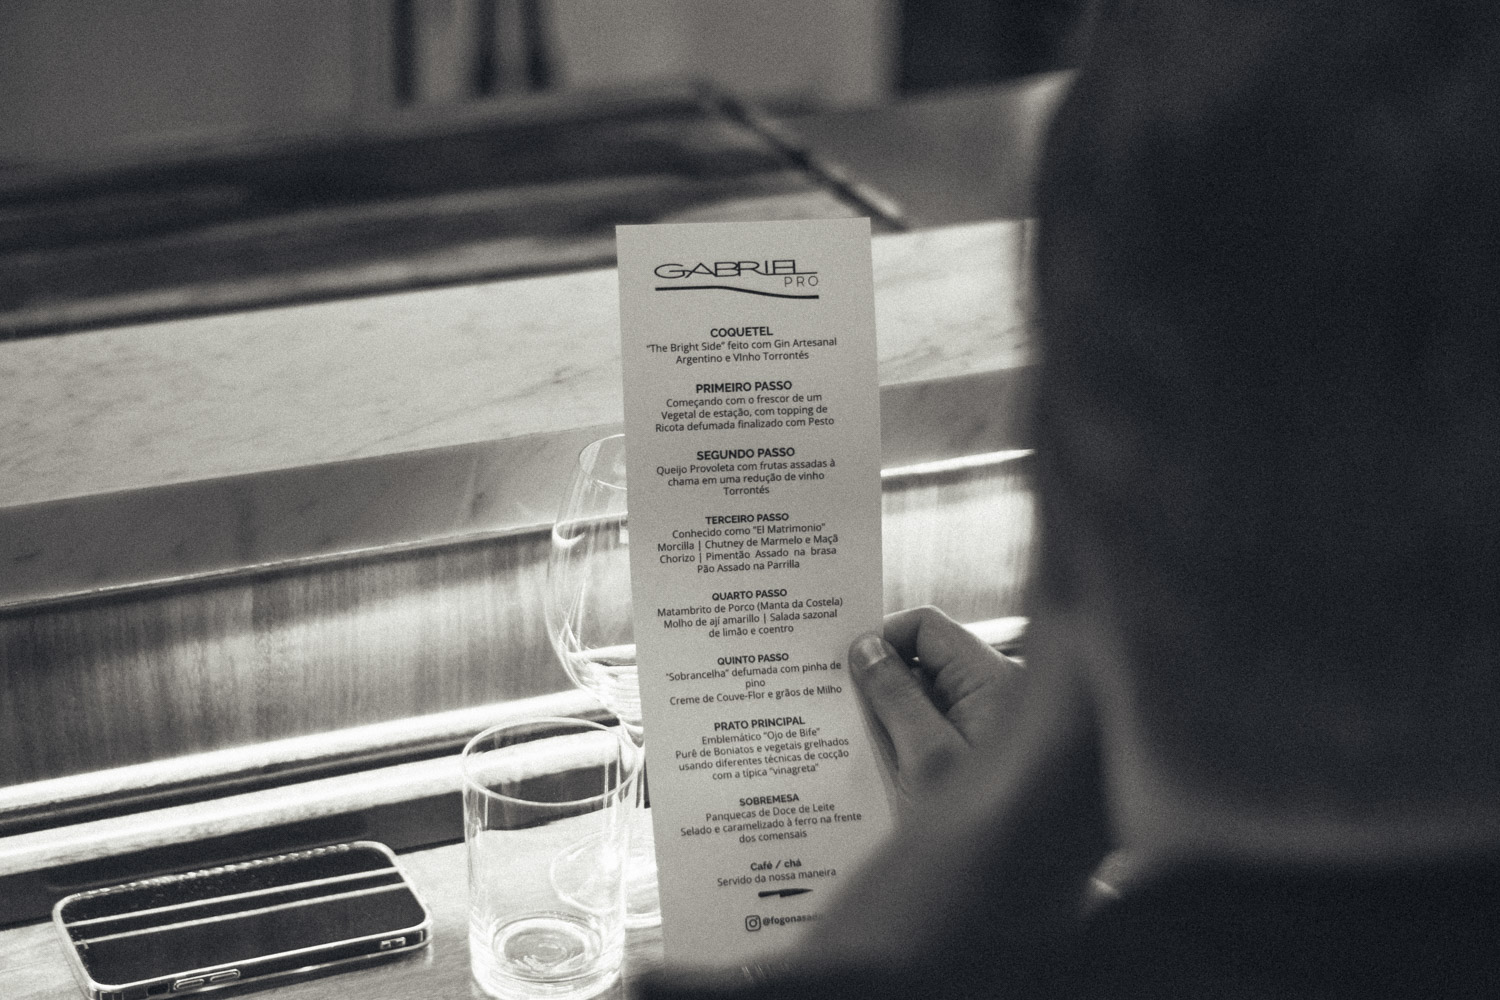 GABRIEL
PRO
COQUETEL
"The Bright Side" feito com Gin Artesanal
Argentino e VInho Torrontés
PRIMEIRO PASSO
Começando com o frescor de um
Vegetal de estação, com topping de
Ricota defumada finalizado com Pesto
SEGUNDO PASSO
Queijo Provoleta com frutas assadas à
chama em uma redução de vinho
Torrontés
TERCEIRO PASSO
Conhecido como "El Matrimonio"
Morcilla | Chutney de Marmelo e Maçã
Chorizo | Pimentão Assado na brasa
Pão Assado na Parrilla
QUARTO PASSO
Matambrito de Porco (Manta da Costela)
Molho de ají amarillo | Salada sazonal
de limão e coentro
QUINTO PASSO
"Sobrancelha" defumada com pinha de
pino
Creme de Couve-Flor e grãos de Milho
PRATO PRINCIPAL
Emblemático "Ojo de Bife"
Purê de Boniatos e vegetais grelhados
usando diferentes técnicas de cocção
com a típica "vinagreta"
SOBREMESA
Panquecas de Doce de Leite
Selado e caramelizado à ferro na frente
dos comensais
Café / chá
Servido da nossa maneira